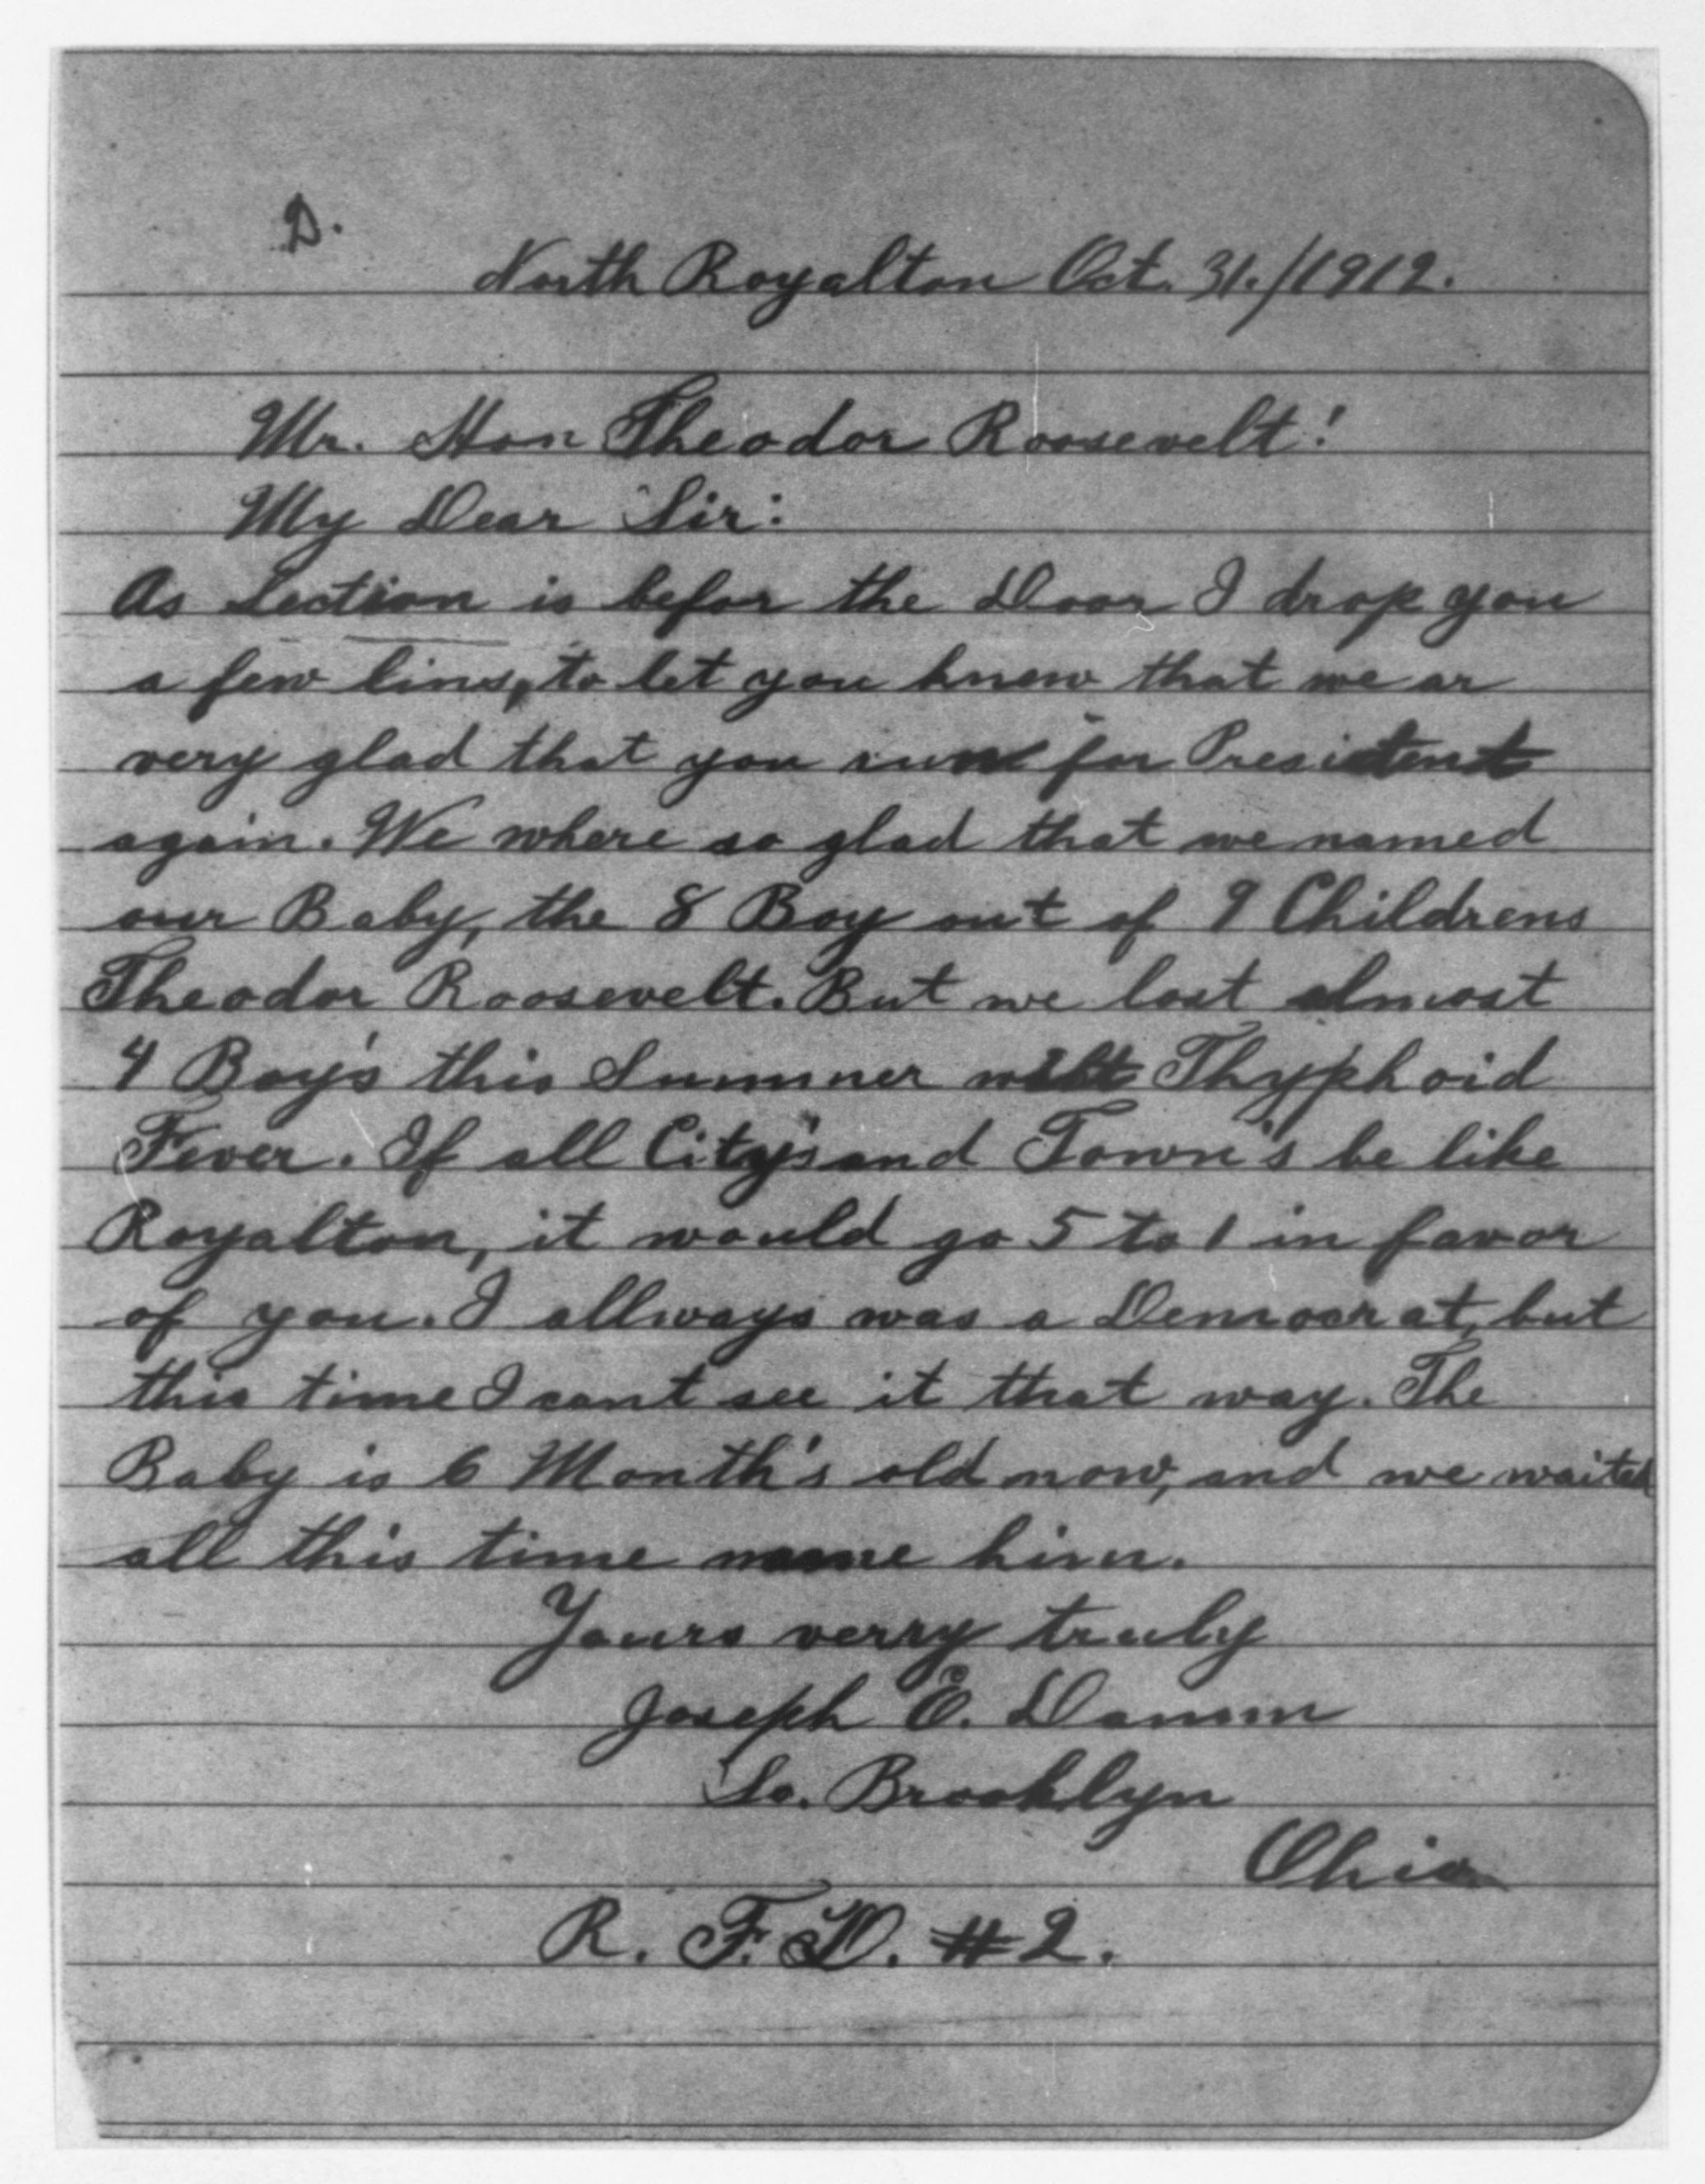 D.
North Royalton Oct. 31./1912.
Mr. Hon Theodor Roosevelt!
My Dear Sir:
As Lection is befor the Door I drop you
a few lins, to let you knew that we ar
very glad that you run for President
again. We where so glad that we named
our Baby, the 8 Boy out of 9 Childrens
Theodor Roosevelt. But we lost almost
4 Boy's this Summer with Thyphoid
Fever. If all City's and Town's be like
Royalton, it would go 5 to 1 in favor
of you. I allways was a Democrat, but
this time I cant see it that way. The
Baby is 6 Month's old now, and we waited
all this time name him.
Yours verry truly
Joseph E. Damm
So. Brooklyn
Ohio
R. F. D. #2.